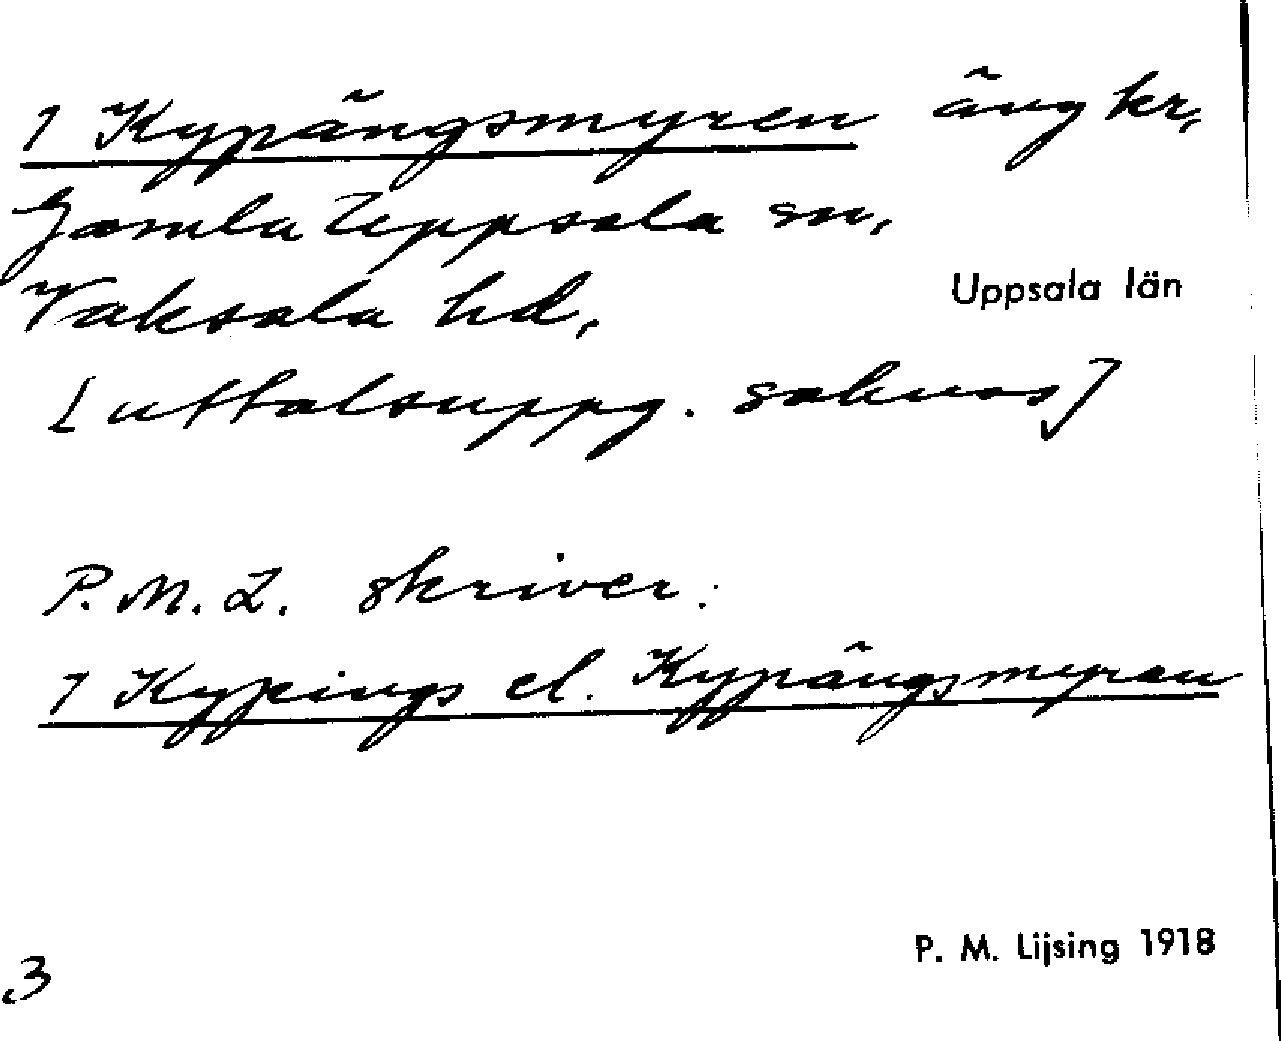 1 Kypängsmyren äng kr,
Gamla Uppsala sn,
Vaksala hd, Uppsala län
[uttalsuppg. saknas]
P. M. L. skriver:
1 Kypings el. Kypängsmyran
P. M. Lijsing 1918
3